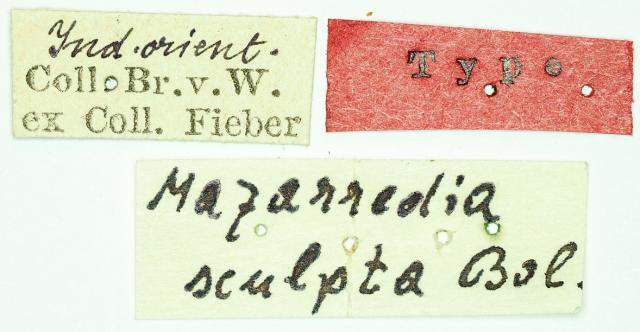 Ind. orient.
Coll. Br. v. W.
ex Coll. Fieber
Type
Mazarredia
sculpta Bol.